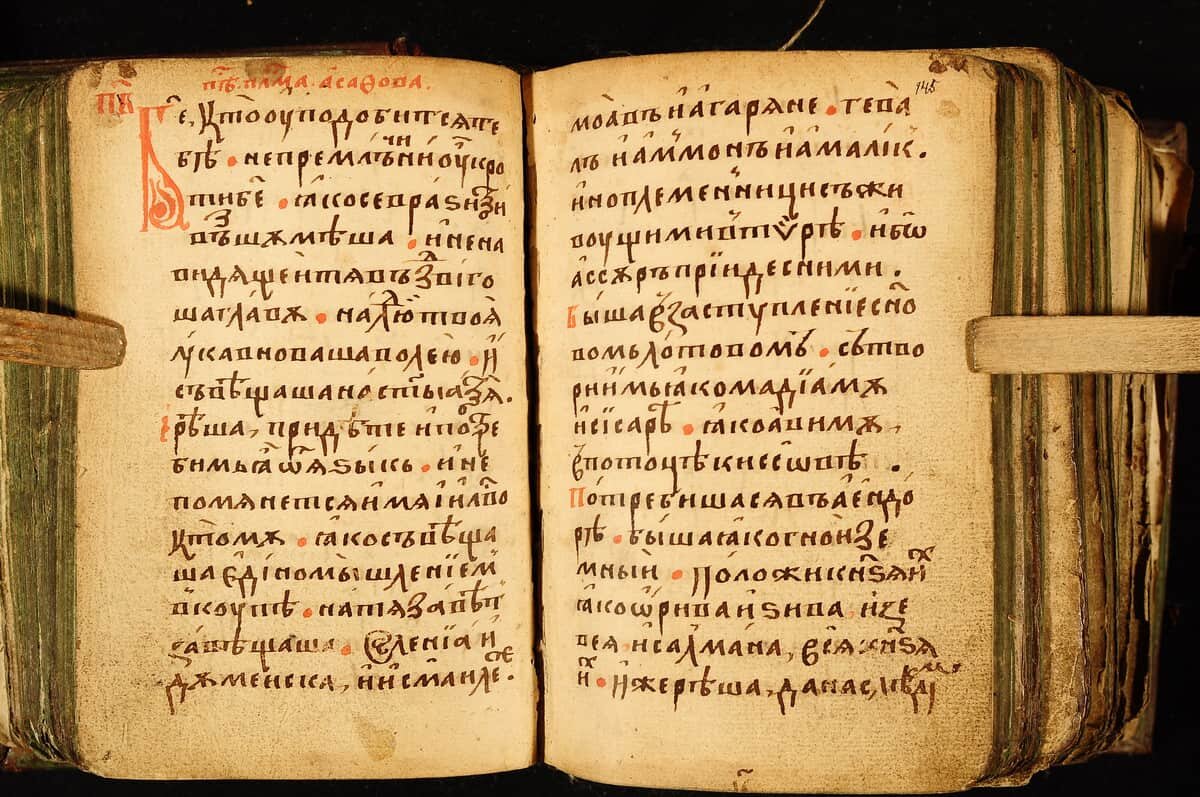 пѣ҇. ѱл҃ма. асаѳова.
п҃в
Б҃е, кто оуподобитсѧ те
бѣ • непремлъчи ни оукро
ти б҃е • ꙗко се врази
въꙁшѫмѣша • и нена
видѧщеи тѧ въꙁдвіго
ша главѫ • на люⷣ твоѧ
лукавноваша волею • и
съвѣщаша на ст҃ыѧ
рѣша, прідѣте и потре
бимь ѧ ѿ ѧꙁыкь • и не
помѧнетсѧ имѧ іи҃лво
ктомѫ • ꙗко съвѣща
ша едіномышленіем
вкоупѣ • на тѧ завѣт
завѣщаша • селеніа и
дѫменска, и исмаиле.
145
моавъ и агарѧне • гева
лъ и аммонъ и амалік.
иноплеменници съ жи
воущими в тѵрѣ • ибо
ассѫръ пріиде с ними.
Быша в заступленіе сно
вомь лотовомь • сътво
ри имь ꙗко мадіамѫ
и сісарѣ • ꙗко авимѫ,
в потоцѣ киссовѣ.
Потребишасѧ въ аендо
рѣ • быша ꙗко гнои зе
мныи • положи кнѧѕѧ их
ꙗко орива и ѕива и зе
веѧ и салмана, всѧ кнѧѕѧ
их • иже рѣша, да наслѣди